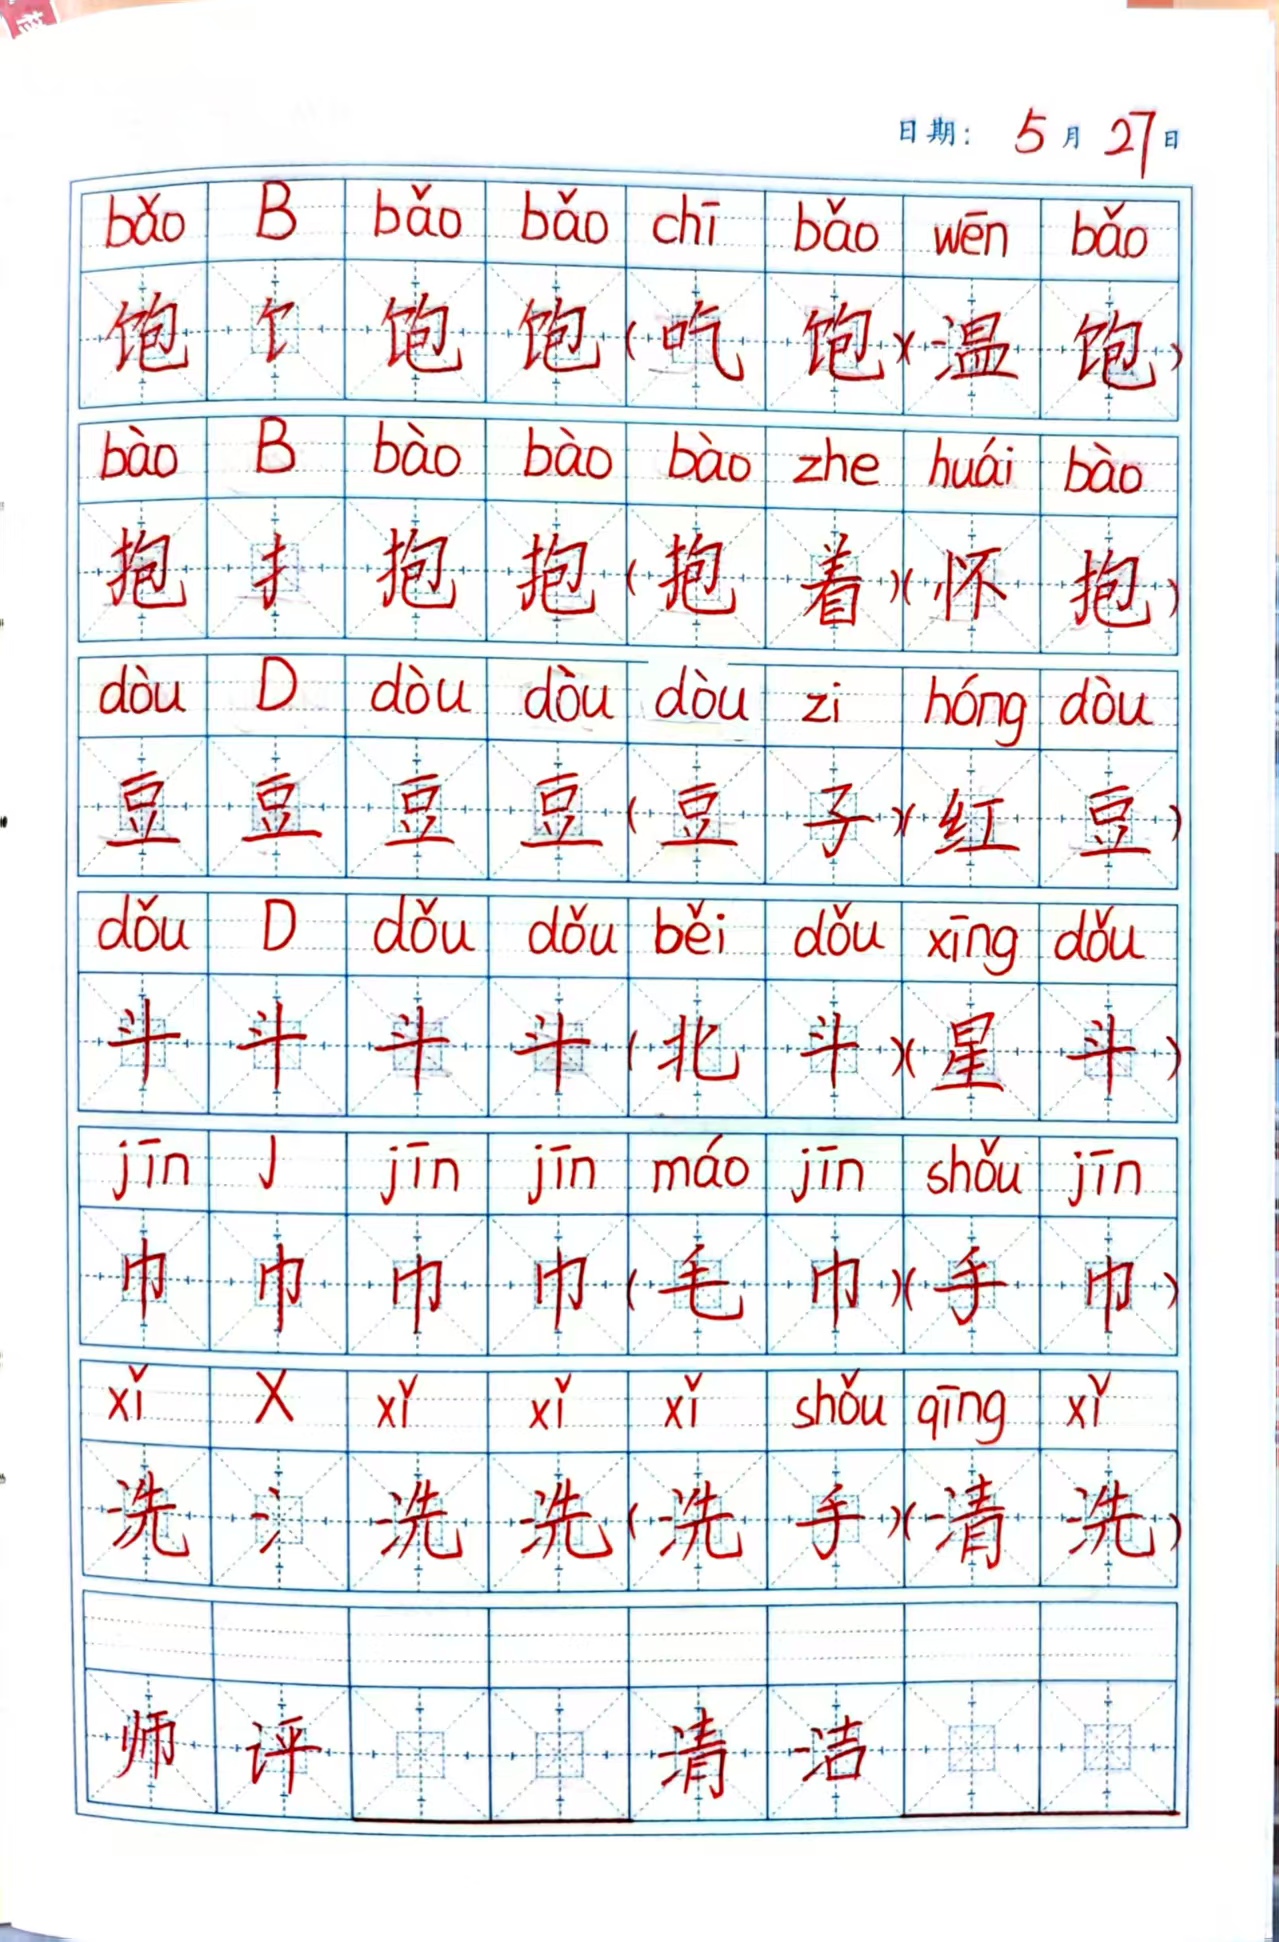 日期： 5 月 27 日
bǎo B bǎo bǎo chī bǎo wēn bǎo
饱 饣 饱 饱 (吃 饱)(温 饱)
bào B bào bào bào zhe huái bào
抱 扌 抱 抱 (抱 着)(怀 抱)
dòu D dòu dòu dòu zi hóng dòu
豆 豆 豆 豆 (豆 子)(红 豆)
dǒu D dǒu dǒu běi dǒu xīng dǒu
斗 斗 斗 斗 (北 斗)(星 斗)
jīn J jīn jīn máo jīn shǒu jīn
巾 巾 巾 巾 (毛 巾)(手 巾)
xǐ X xǐ xǐ xǐ shǒu qīng xǐ
洗 氵 洗 洗 (洗 手)(清 洗)
师 评 清 洁